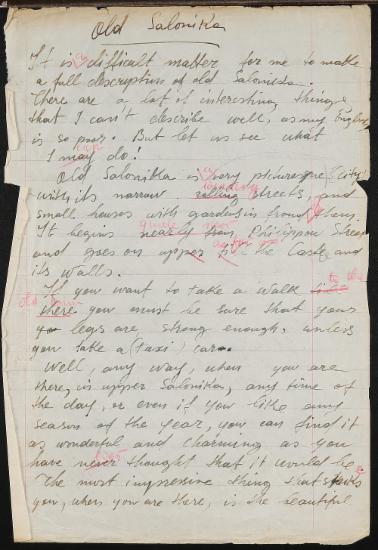 Old Salonika
It is a difficult matter for me to make
a full description of old Salonika.
There are a lot of interesting things
that I can't describe well, as my English
is so poor. But let us see what
can
I may do!
a
Old Salonika is very picturesque (city)
winding
with its narrow rolling streets, and
small houses with gardens in front of them.
It begins nearly from Philippou Street
and goes on upper to the Castle and
as far as
its walls.
If you want to take a walk to the
old town
there you must be sure that your
legs are strong enough, unless
you take a (taxi) car.
Well, any way, when you are
there, in upper Salonika, any time of
the day, or even if you like any
season of the year, you can find it
as wonderful and charming as you
have never thought that it would be.
The most impressive thing that strikes
you, when you are there, is the beautiful